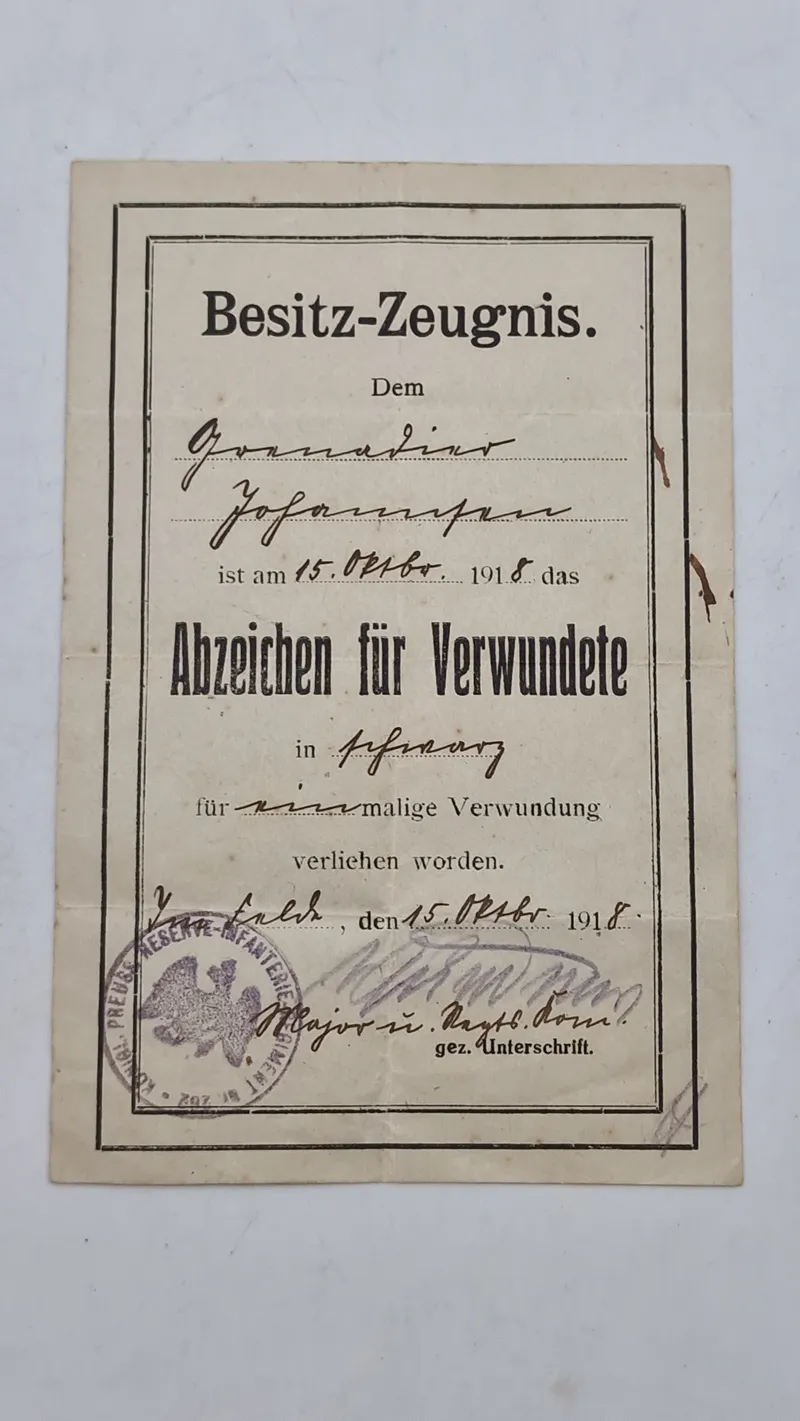 Besitz-Zeugnis.
Dem
Grenadier
Johannsen
ist am 15. Oktbr. 1918 das
Abzeichen für Verwundete
in schwarz
für einmalige Verwundung
verliehen worden.
Im Felde, den 15. Oktbr. 1918.
Major u. Regts. Kom.
gez. Unterschrift.
KÖNIGL. PREUSS. RESERVE-INFANTERIE-REGIMENT Nr. 202